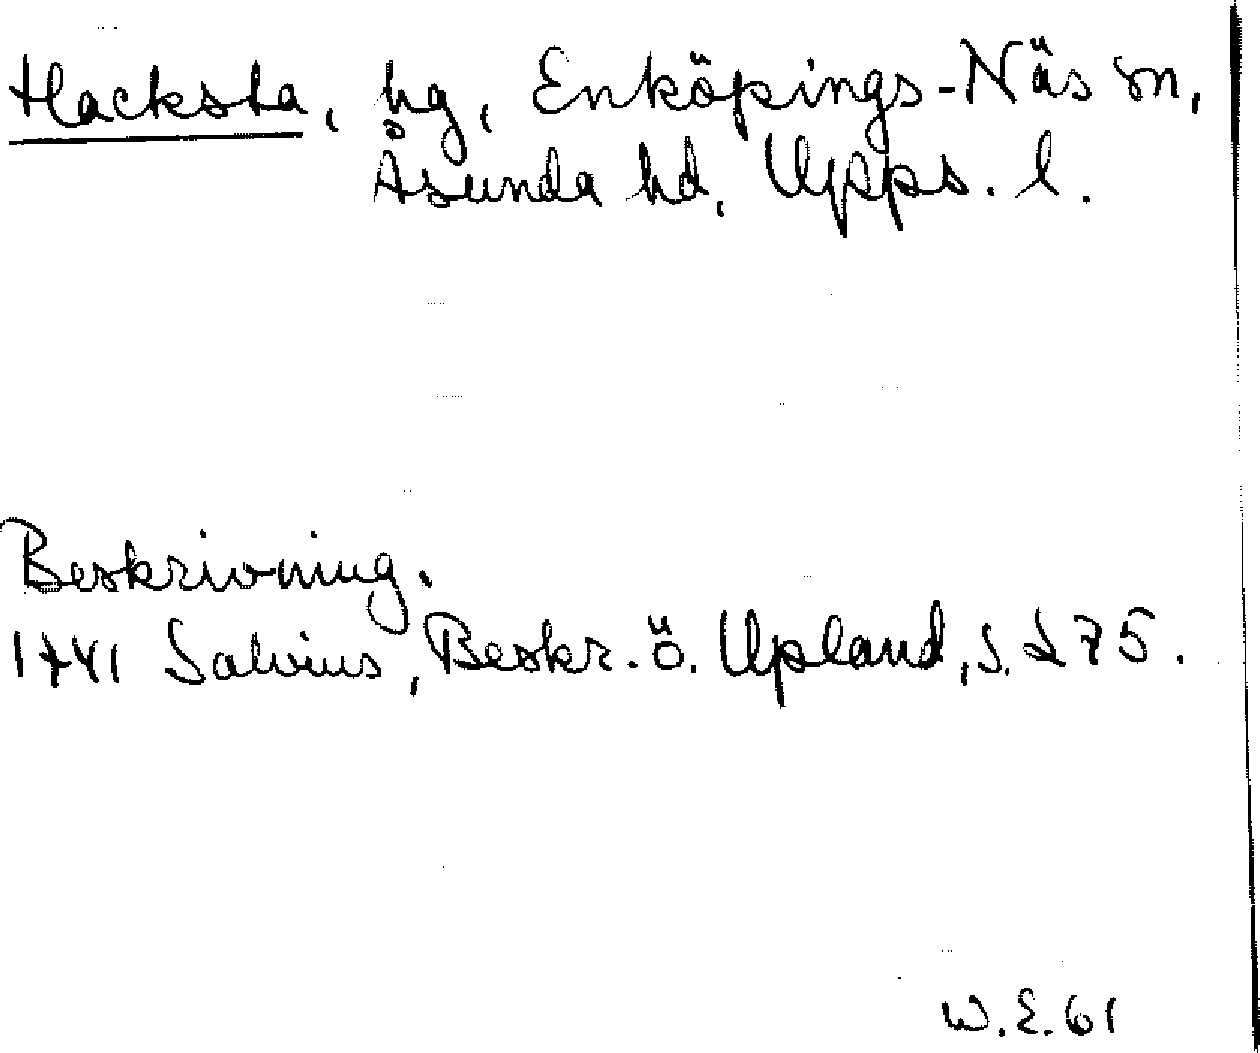 Hacksta, hg, Enköpings-Näs sn,
Åsunda hd, Upps. l.
Beskrivning.
1741 Salvius, Beskr. ö. Upland, s. 275.
W.E.61